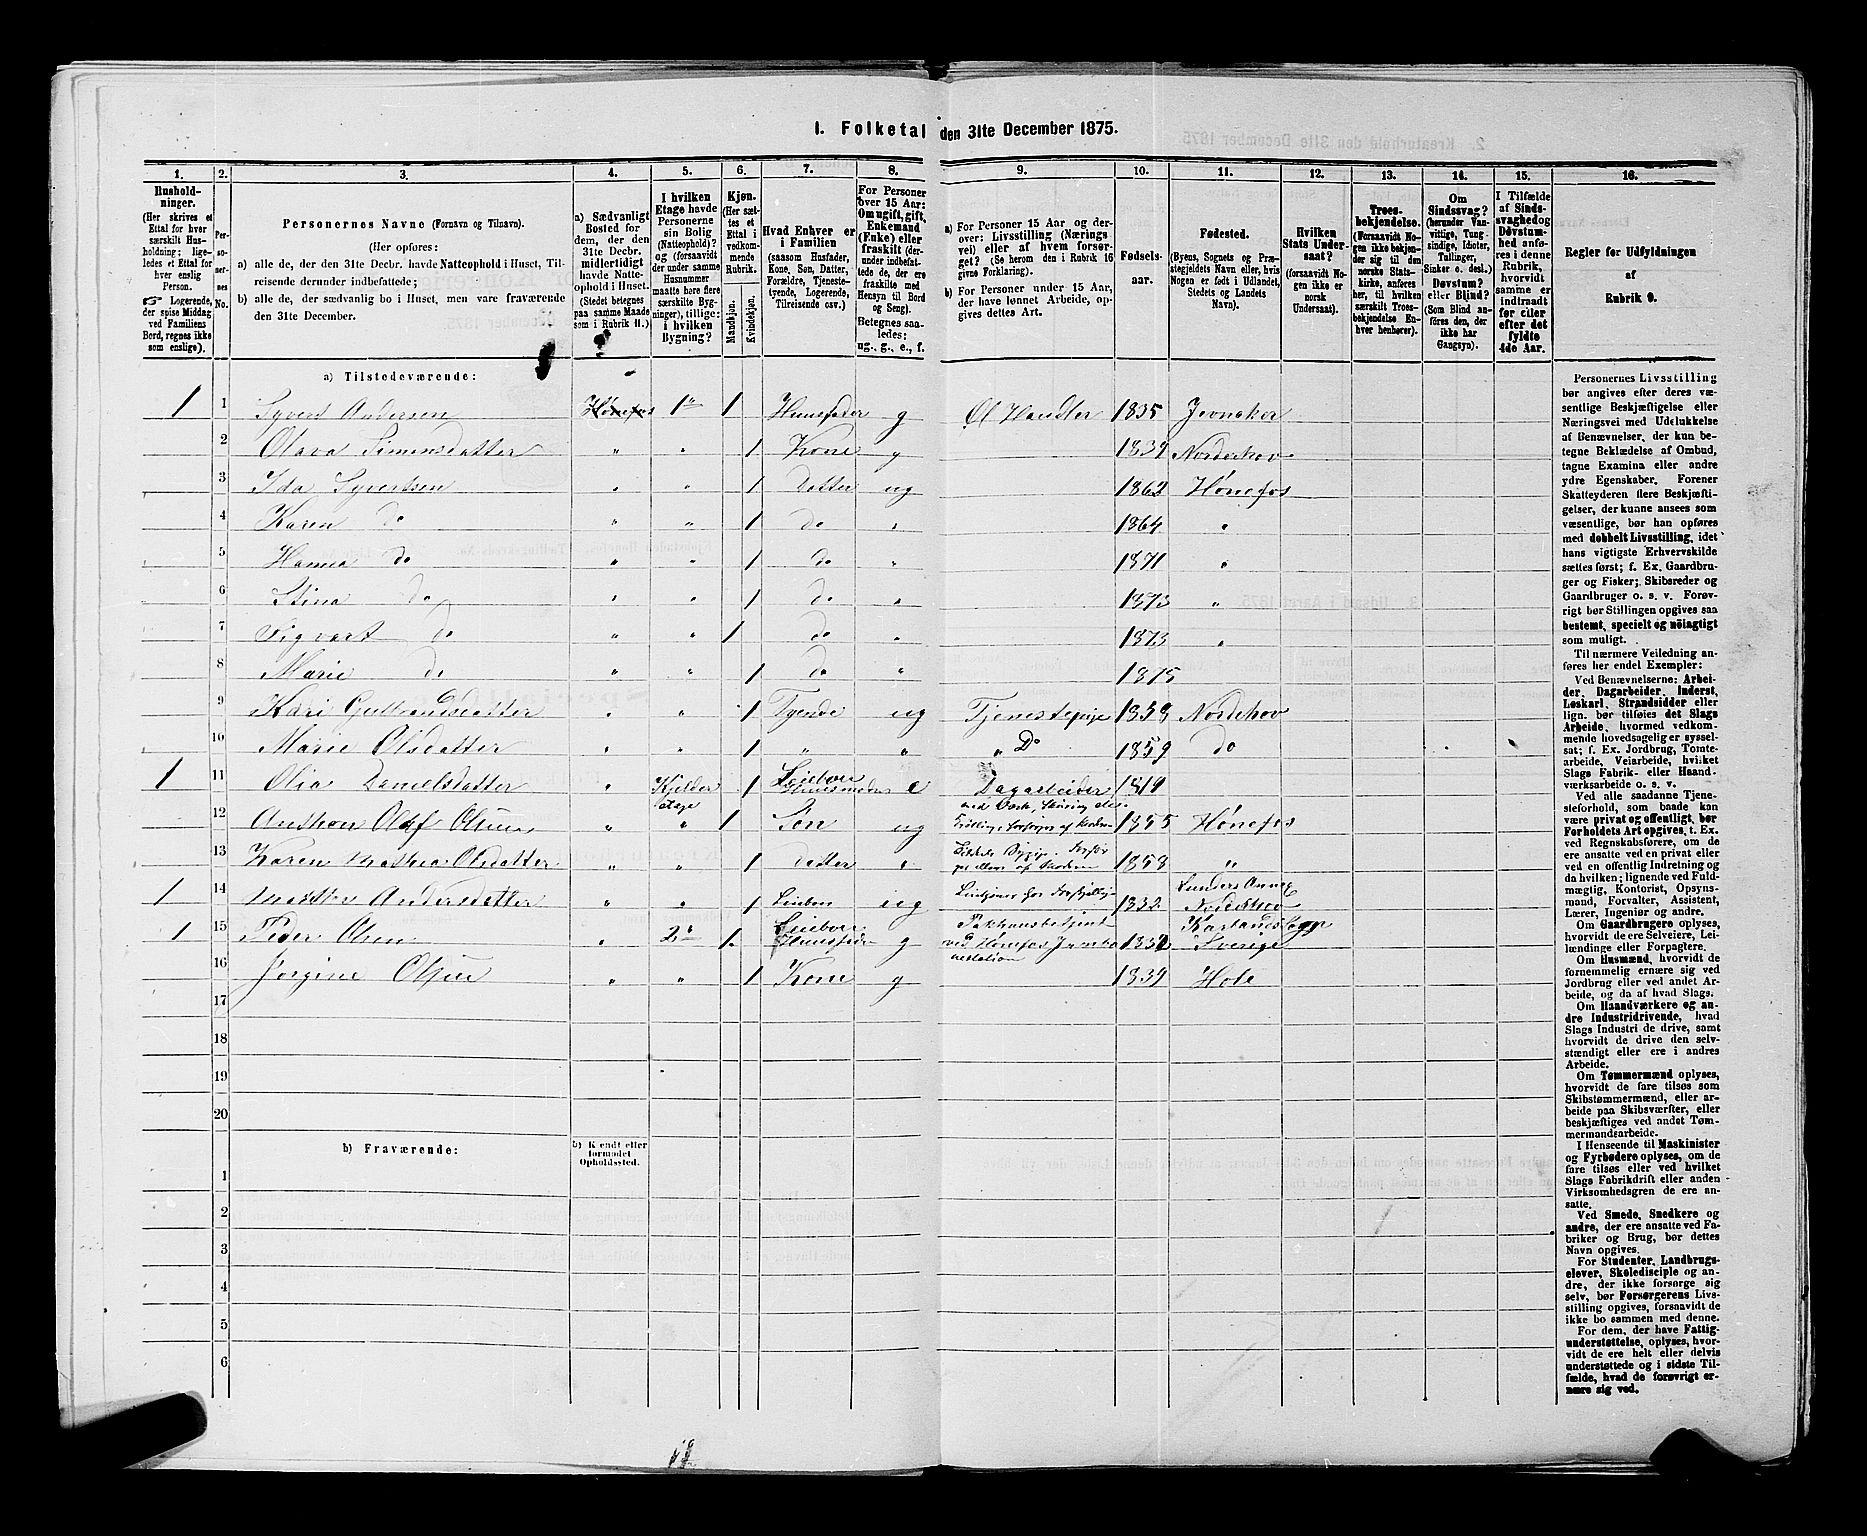 I. Folketal den 31te December 1875.
1. 2. 3. 4. 5. 6. 7. 8. 9. 10. 11. 12. 13. 14. 15. 16.
Husholdninger.
(Her skrives et
Ettal for hver
særskilt Husholdning;
ligeledes et Ettal for
hver enslig
Person.
☞ Logerende,
der spise Middag
ved Familiens
Bord, regnes ikke
som enslige).
Personernes No.
Personernes Navne (Fornavn og Tilnavn).
(Her opføres:
a) alle de, der den 31te Decbr. havde Natteophold i Huset, Tilreisende derunder indbefattede;
b) alle de, der sædvanlig bo i Huset, men vare fraværende
den 31te December.
a) Sædvanligt
Bosted for
dem, der den
31te Decbr.
midlertidigt
havde Natteophold
i Huset.
(Stedet betegnes
paa samme Maade
som i Rubrik 11.)
I hvilken
Etage havde
Personerne
sin Bolig
(Natteophold)?
og (forsaavidt
der under samme
Husnummer
maatte høre flere
særskilte Bygninger),
tillige:
i hvilken
Bygning?
Kjøn.
(Her sættes
et
Ettal i
vedkommende
Rubrik.
Mandkjøn.
Kvindekjøn.
Hvad Enhver er
i Familien
(saasom Husfader,
Kone, Søn, Datter,
Forældre, Tjenestetyende,
Logerende,
Tilreisende osv.)
For Personer
over 15 Aar:
Om ugift, gift,
Enkemand
(Enke) eller
fraskilt (derunder
indbefattede
de, der ere
fraskilte med
Hensyn til Bord
og Seng).
Betegnes saaledes:
ug., g., e., f.
a) For Personer 15 Aar og derover:
Livsstilling (Næringsvei)
eller af hvem forsørget?
(Se herom den i Rubrik 16
givne Forklaring).
b) For Personer under 15 Aar,
der have lønnet Arbeide, opgives
dettes Art.
Fødselsaar.
Fødested.
(Byens, Sognets og Præstegjeldets
Navn eller, hvis
Nogen er født i Udlandet,
Stedets og Landets
Navn).
Hvilken
Stats Undersaat?
(forsaavidt Nogen
ikke er
norsk
Undersaat).
Troesbekjendelse.
(Forsaavidt Nogen
ikke bekjender
sig til den
norske Statskirke,
anføres
her, til hvilken
særskilt Troesbekjendelse
Enhver
henhører).
Om
Sindssvag?
(herunder Vanvittige,
Tungsindige,
Idioter,
Tullinger,
Sinker o. desl.)
Døvstum?
eller Blind?
(Som Blind anføres
den, der
ikke har
Gangsyn).
I Tilfælde
af Sindssvaghed
og
Døvstumhed
anføres
i denne
Rubrik,
hvorvidt
samme er
indtraadt
før eller
efter det
fyldte
4de Aar.
Regler for Udfyldningen
af
Rubrik 9.
a) Tilstedeværende:
1 1 Syvert Andersen Hønefos 1" 1 Huusfader g Øl Handler 1835 Jevnaker
2 Olava Simensdatter " " 1 Kone g 1839 Norderhov
3 Ida Syvertsen " " 1 Datter ug 1862 Hønefos
4 Karen do " " 1 do " 1864 "
5 Hanna do " " 1 do " 1871 "
6 Stina do " " 1 do " 1873 "
7 Sigvart do " " 1 do " 1873 "
8 Marie do " " 1 do " 1875
9 Kari Gulbrandsdatter " " 1 Tyende ug Tjenestepige 1853 Norderhov
10 Marie Olsdatter " " 1 " " " Do 1859 do
1 11 Olia Danielsdatter " Kjelder etage 1 e Dagarbeider 1819
12 Olaf Olsen " " 1 Søn ug 1855 Hønefos
13 Karen Mathea Olsdatter " " 1 datter " 1858 "
1 14 Andersdatter " " 1 ug 1832 Norderhov
1 15 Peder Olsen " 2" 1 g Pakhusbetjent ved Hønefos Sverige
16 Jørgine Olsen " " 1 Kone g 1839 Hole
17
18
19
20
b) Fraværende:
b) Kjendt eller
formodet
Opholdssted.
1
2
3
4
5
6
Personernes Livsstilling
bør angives efter deres væsentlige
Beskjæftigelse eller
Næringsvei med Udelukkelse
af Benævnelser, der kun betegne
Beklædelse af Ombud,
tagne Examina eller andre
ydre Egenskaber. Forener
Skatteyderen flere Beskjæftigelser,
der kunne ansees som
væsentlige, bør han opføres
med dobbelt Livsstilling, idet
hans vigtigste Erhvervskilde
sættes først; f. Ex. Gaardbruger
og Fisker; Skibsreder og
Gaardbruger o. s. v. Forøvrigt
bør Stillingen opgives saa
bestemt, specielt og nøiagtigt
som muligt.
Til nærmere Veiledning anføres
her endel Exempler:
Ved Benævnelserne: Arbeider,
Dagarbeider, Inderst,
Løskarl, Strandsidder eller
lign. bør tilføies det Slags
Arbeide, hvormed vedkommende
hovedsagelig er sysselsat;
f. Ex. Jordbrug, Tomtearbeide,
Veiarbeide, hvilket
Slags Fabrik- eller Haandværksarbeide
o. s. v.
Ved alle saadanne Tjenesteforhold,
som baade kan
være privat og offentligt, bør
Forholdets Art opgives, t. Ex.
ved Regnskabsførere, om de
ere ansatte ved en privat eller
ved en offentlig Indretning og
da hvilken; lignende ved Fuldmægtig,
Kontorist, Opsynsmand,
Forvalter, Assistent,
Lærer, Ingeniør og andre.
Om Gaardbrugere oplyses,
hvorvidt de ere Selveiere, Leilændinge
eller Forpagtere.
Om Husmænd, hvorvidt de
fornemmelig ernære sig ved
Jordbrug eller ved andet Arbeide,
og da af hvad Slags.
Om Haandværkere og andre
Industridrivende, hvad
Slags Industri de drive, samt
hvorvidt de drive den selvstændigt
eller ere i andres
Arbeide.
Om Tømmermænd oplyses,
hvorvidt de fare tilsøs som
Skibstømmermænd, eller arbeide
paa Skibsværfter, eller
beskjæftiges ved andet Tømmermandsarbeide.
I Henseende til Maskinister
og Fyrbødere oplyses, om de
fare tilsøs eller ved hvilket
Slags Fabrikdrift eller anden
Virksomhedsgren de ere ansatte.
Ved Smede, Snedkere og
andre, der ere ansatte ved Fabriker
og Brug, bør dettes
Navn opgives.
For Studenter, Landbrugselever,
Skoledisciple og andre,
der ikke forsørge sig
selv, bør Forsørgerens Livsstilling
opgives, forsaavidt de
ikke bo sammen med denne.
For dem, der have Fattigunderstøttelse,
oplyses, hvorvidt
de ere helt eller delvis
understøttede og i sidste Tilfælde,
hvad de forøvrigt ernære
sig ved.